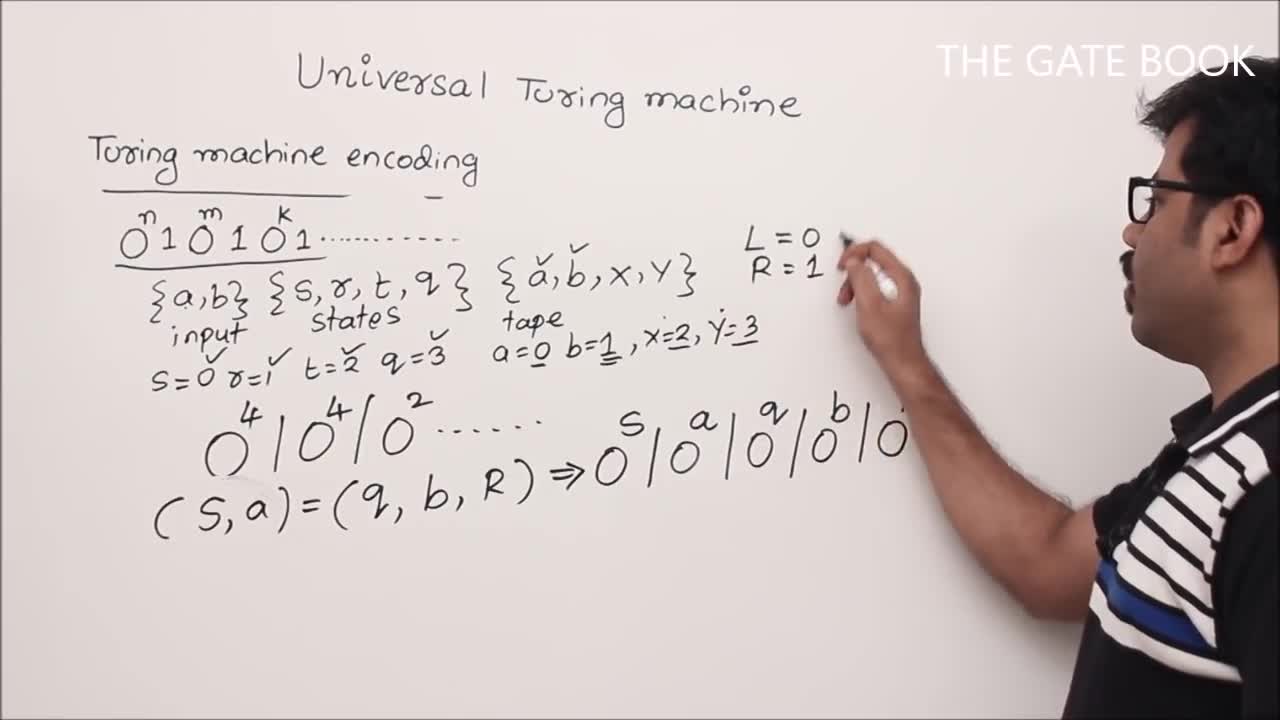 THE GATE BOOK
Universal Turing machine
Turing machine encoding
0ⁿ 1 0ᵐ 1 0ᵏ 1 ..............
{a,b} {s, r, t, q} {a, b, x, y}
input states tape
s=0 r=1 t=2 q=3 a=0 b=1, x=2, y=3
L = 0
R = 1
0⁴ | 0⁴ | 0² ......
(s, a) = (q, b, R) ⇒ 0^s | 0^a | 0^q | 0^b | 0